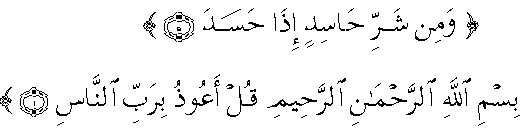 ﴿ وَمِن شَرِّ حَاسِدٍ إِذَا حَسَدَ ۝٥ ﴾
بِسْمِ ٱللَّهِ ٱلرَّحْمَـٰنِ ٱلرَّحِيمِ قُلْ أَعُوذُ بِرَبِّ ٱلنَّاسِ ۝١ ﴾